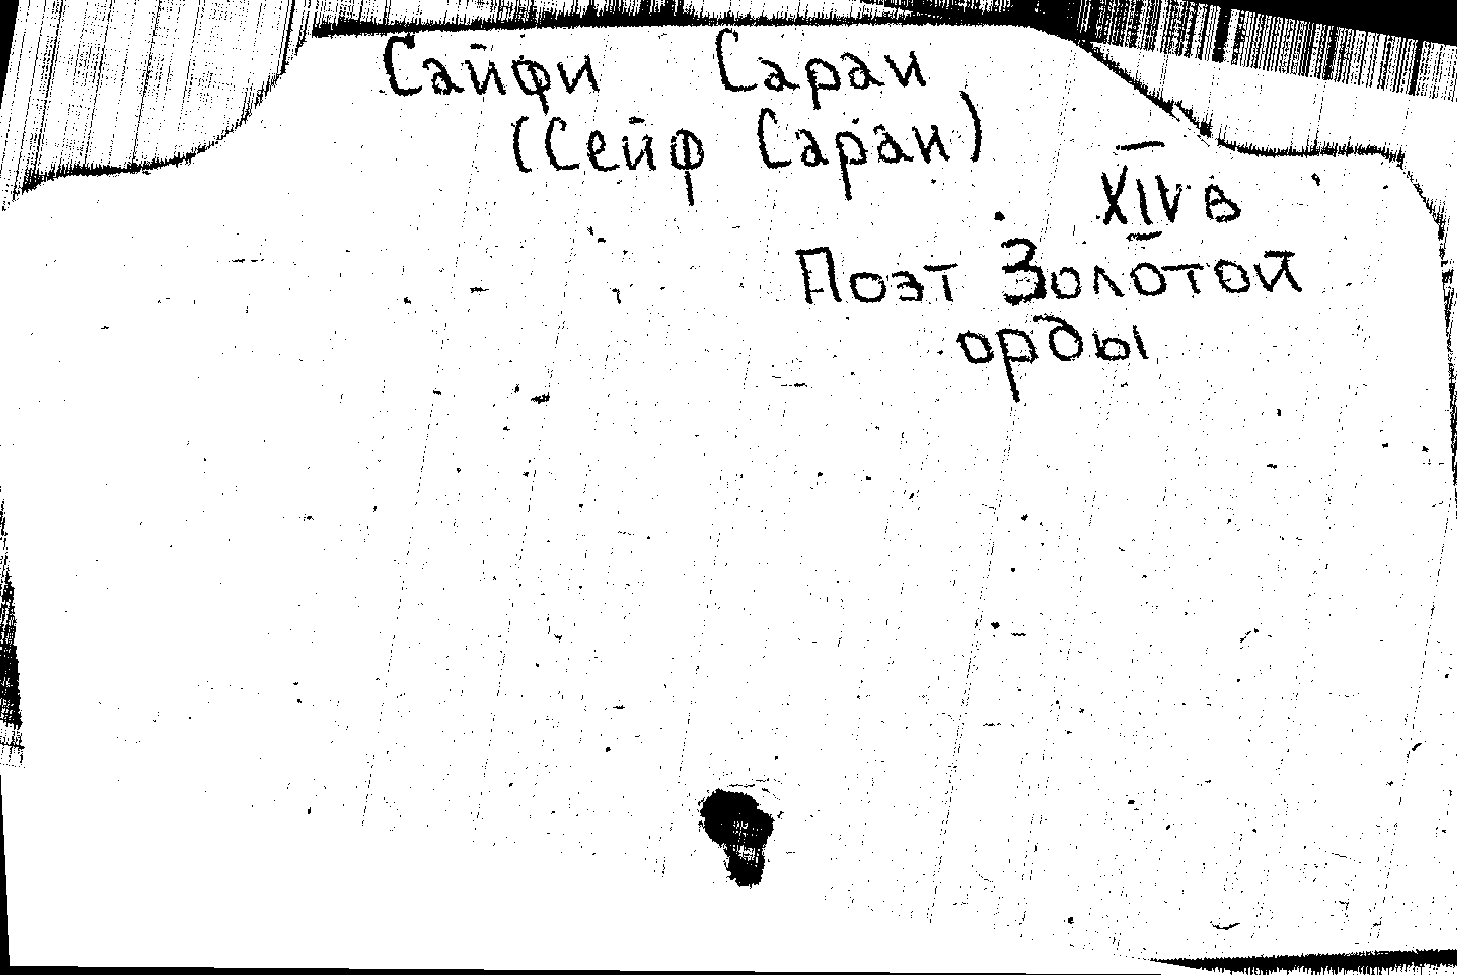 Сайфи Сараи
(Сейф Сараи)
XIV в
Поэт Золотой
орды